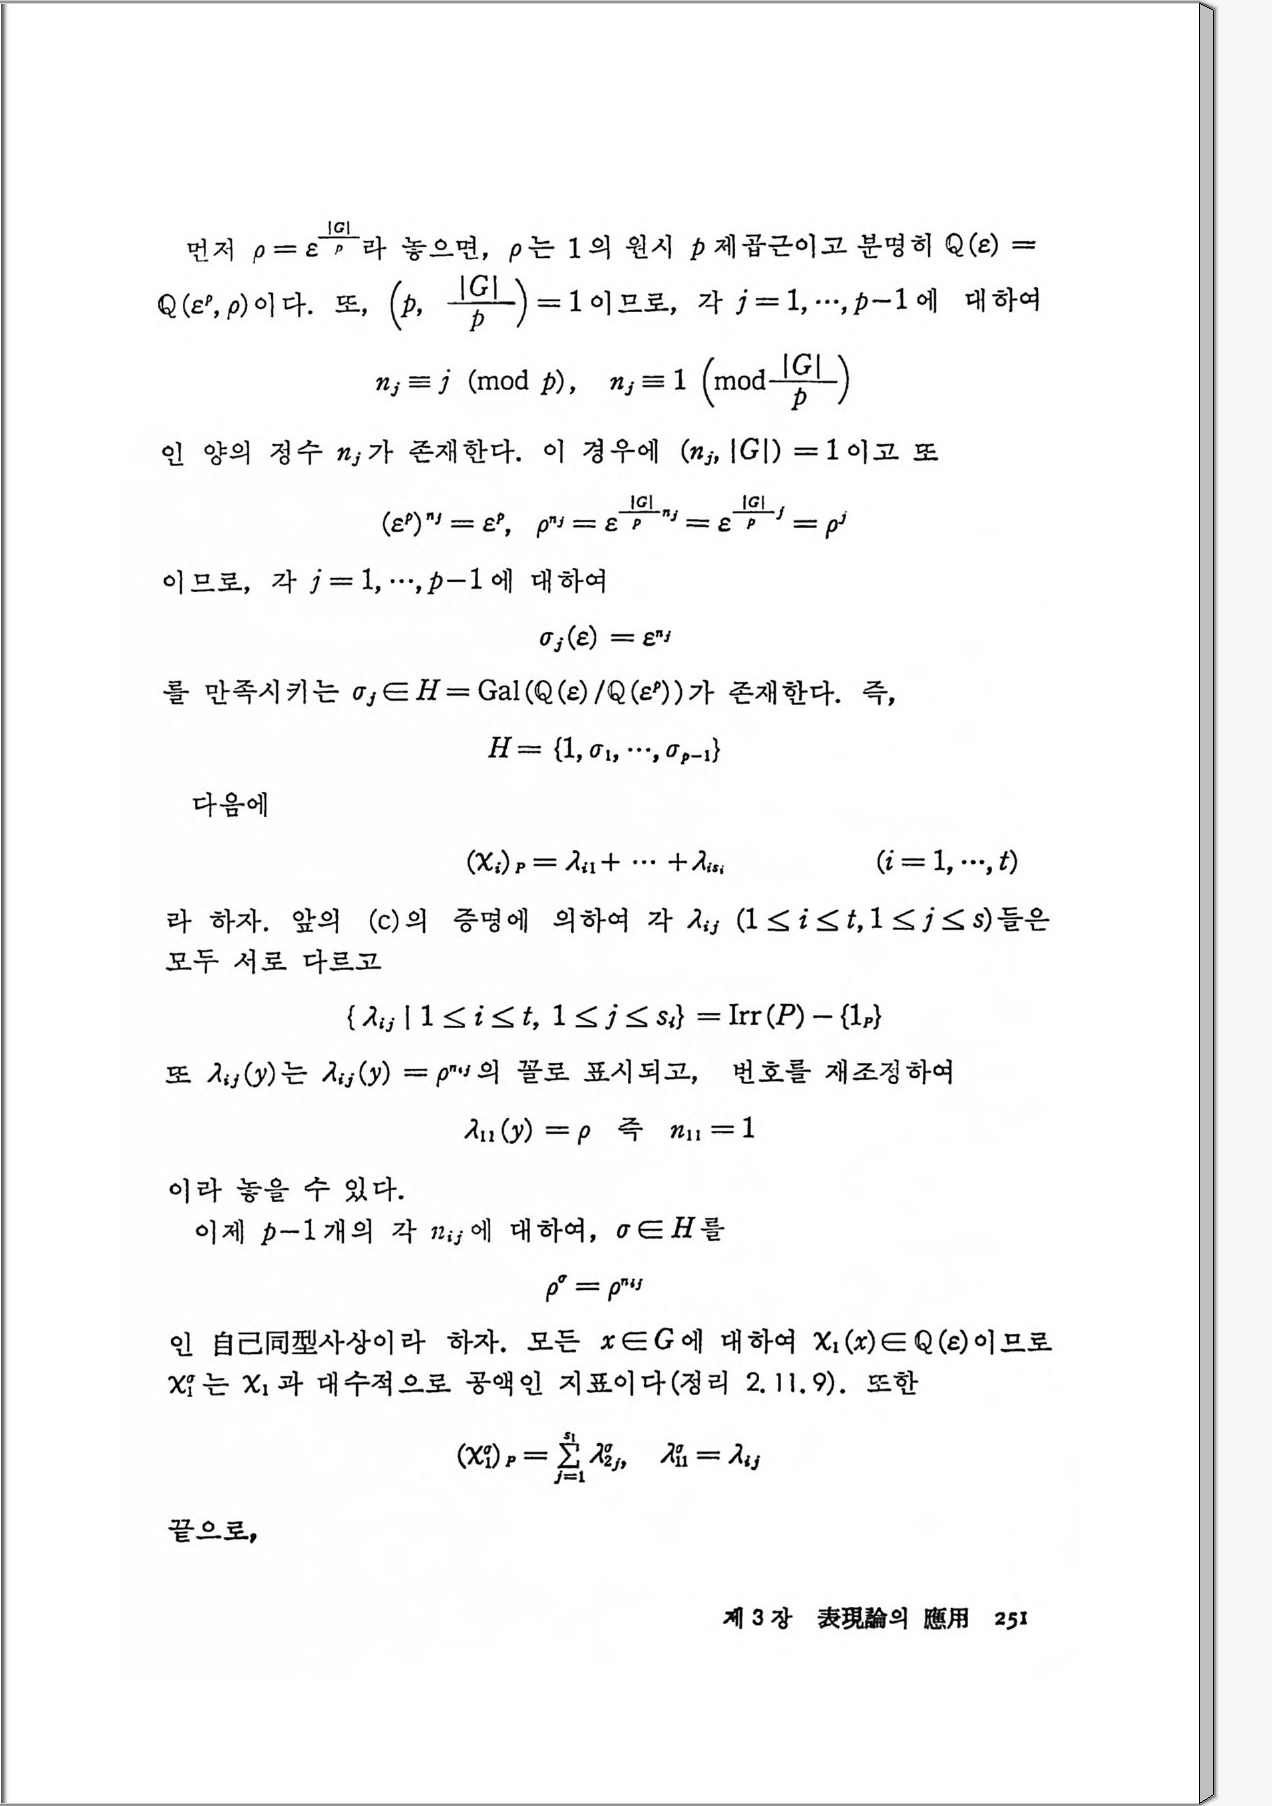 먼저 ρ = ε^{|G|/p} 라 놓으면, ρ는 1의 원시 p 제곱근이고 분명히 ℚ(ε) =
ℚ(ε^p, ρ)이다. 또, (p, |G|/p) = 1이므로, 각 j = 1, …, p−1에 대하여
n_j ≡ j (mod p), n_j ≡ 1 (mod |G|/p)
인 양의 정수 n_j가 존재한다. 이 경우에 (n_j, |G|) = 1이고 또
(ε^p)^{n_j} = ε^p, ρ^{n_j} = ε^{|G|/p n_j} = ε^{|G|/p j} = ρ^j
이므로, 각 j = 1, …, p−1에 대하여
σ_j(ε) = ε^{n_j}
를 만족시키는 σ_j ∈ H = Gal(ℚ(ε)/ℚ(ε^p))가 존재한다. 즉,
H = {1, σ_1, …, σ_{p−1}}
다음에
(χ_i)_P = λ_{i1} + … + λ_{is_i} (i = 1, …, t)
라 하자. 앞의 (c)의 증명에 의하여 각 λ_{ij} (1 ≤ i ≤ t, 1 ≤ j ≤ s)들은
모두 서로 다르고
{λ_{ij} | 1 ≤ i ≤ t, 1 ≤ j ≤ s_i} = Irr(P) − {1_P}
또 λ_{ij}(y)는 λ_{ij}(y) = ρ^{n_{ij}}의 꼴로 표시되고, 번호를 재조정하여
λ_{11}(y) = ρ 즉 n_{11} = 1
이라 놓을 수 있다.
이제 p−1개의 각 n_{ij}에 대하여, σ ∈ H를
ρ^σ = ρ^{n_{ij}}
인 自己同型사상이라 하자. 모든 x ∈ G에 대하여 χ_1(x) ∈ ℚ(ε)이므로
χ_1^σ는 χ_1과 대수적으로 공액인 지표이다(정리 2.11.9). 또한
(χ_1^σ)_P = ∑_{j=1}^{s_1} λ_{2j}^σ, λ_{11}^σ = λ_{ij}
끝으로,
제 3 장 表現論의 應用 251